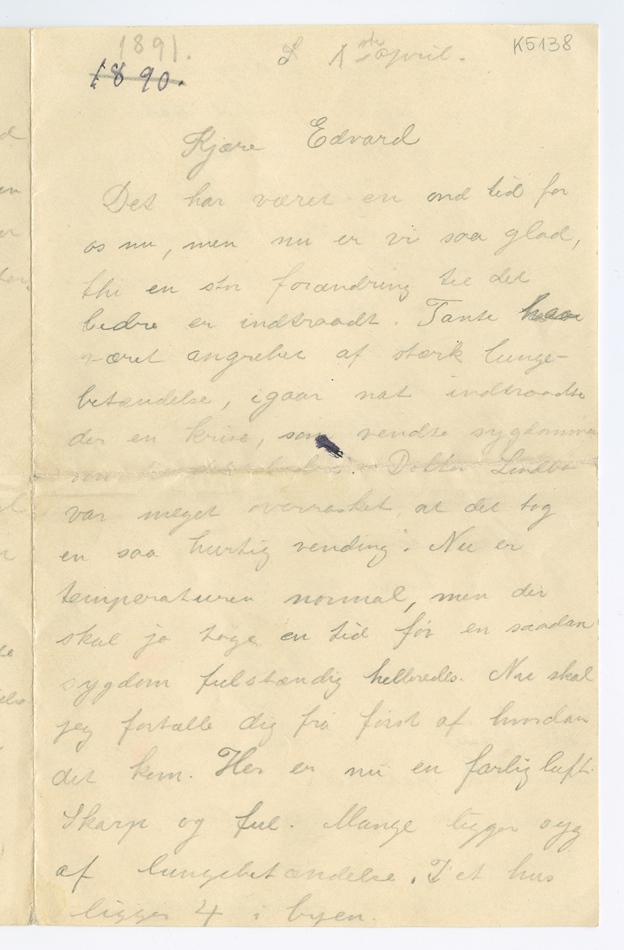 1891.
1890.
L 1ste April.
K5138
Kjære Edvard
Det har været en ond tid for
os nu, men nu er vi saa glad,
thi en stor forandring til det
bedre er indtraadt. Tante har
været angrebet af stærk lunge-
betændelse, igaar nat indtraadte
der en krise, som vendte sygdommen
Doktor
var meget overrasket, at det tog
en saa hurtig vending. Nu er
temperaturen normal, men der
skal jo tage en tid før en saadan
sygdom fulstændig helleredes. Nu skal
jeg fortælle dig fra først af hvordan
det kom. Her er nu en farlig luft.
Skarp og ful. Mange ligger syg
af lungebetændelse. I et hus
ligger 4 i byen.